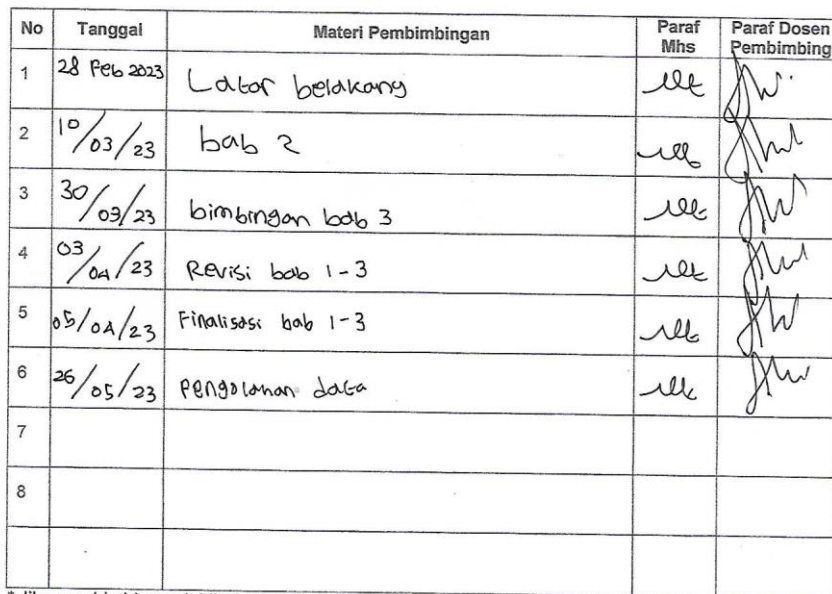 No Tanggal Materi Pembimbingan Paraf Mhs Paraf Dosen Pembimbing
1 28 Feb 2023 Latar belakang
2 10/03/23 bab 2
3 30/03/23 bimbingan bab 3
4 03/04/23 Revisi bab 1-3
5 05/04/23 Finalisasi bab 1-3
6 26/05/23 Pengolahan data
7
8